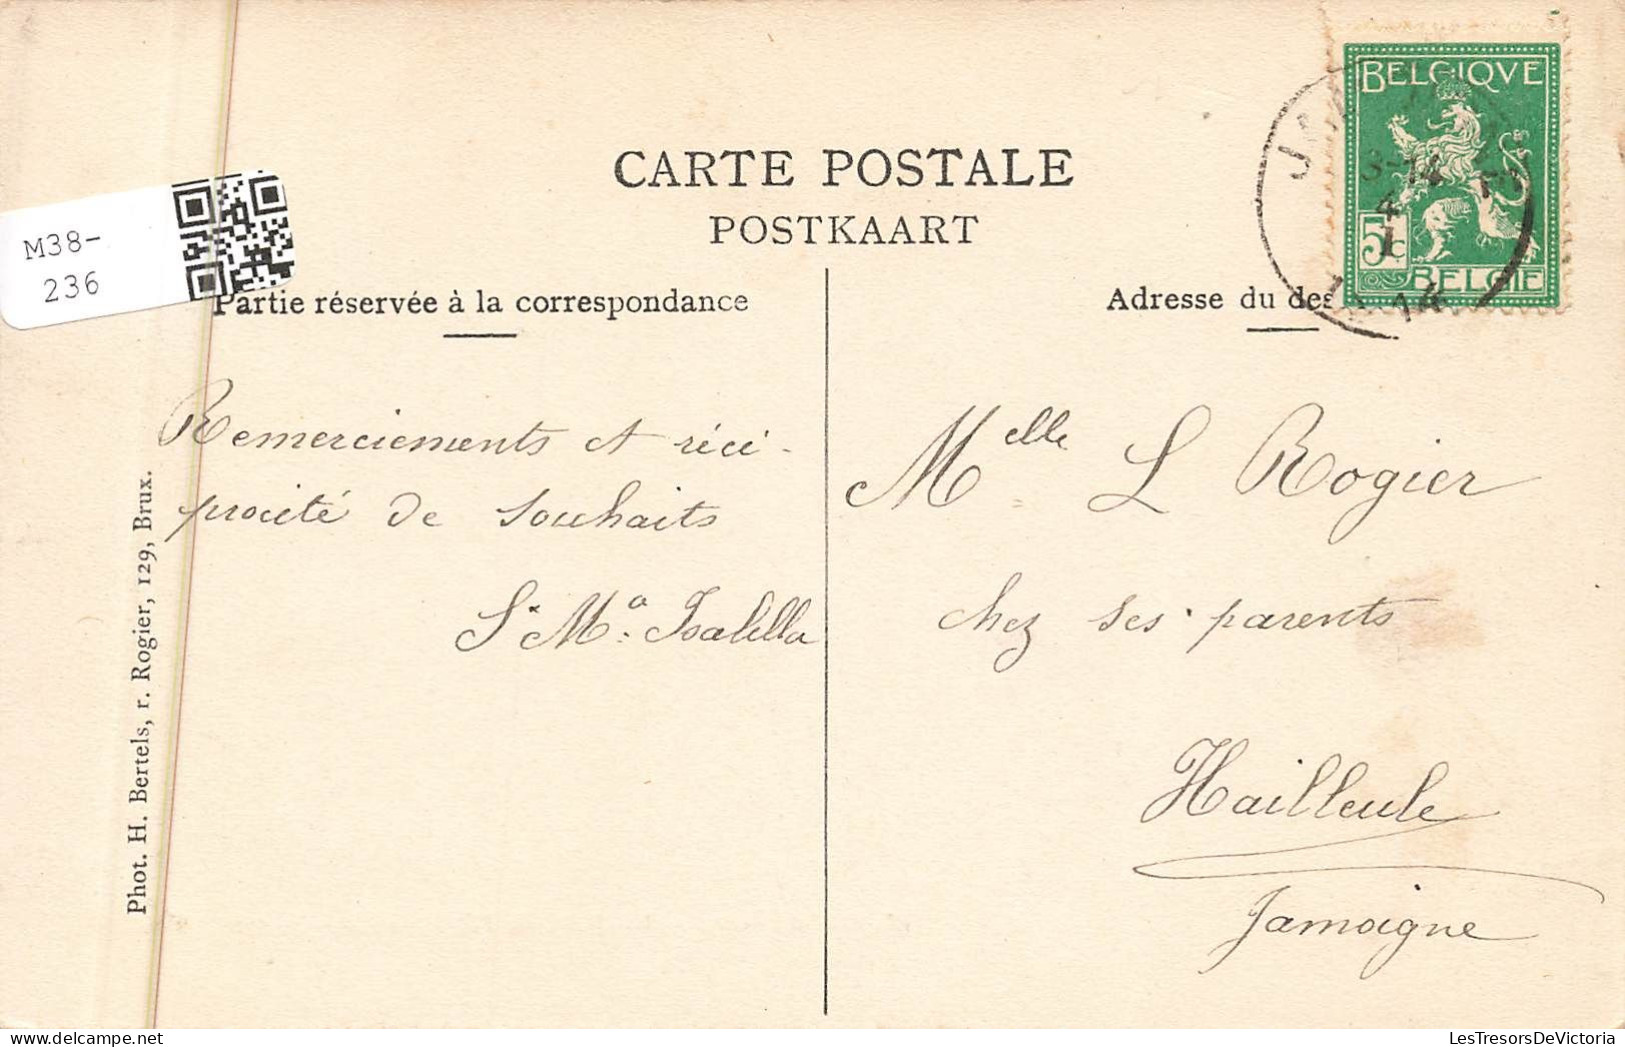 BELGIQVE
5c
BELGIE
CARTE POSTALE
POSTKAART
M38-
236
Partie réservée à la correspondance
Adresse du des
Remerciements et réci-
procité de souhaits
Sr Ma. Isabella
Melle L Rogier
chez ses parents
Hailleule
Jamoigne
Phot. H. Bertels, r. Rogier, 129, Brux.
LesTresorsDeVictoria